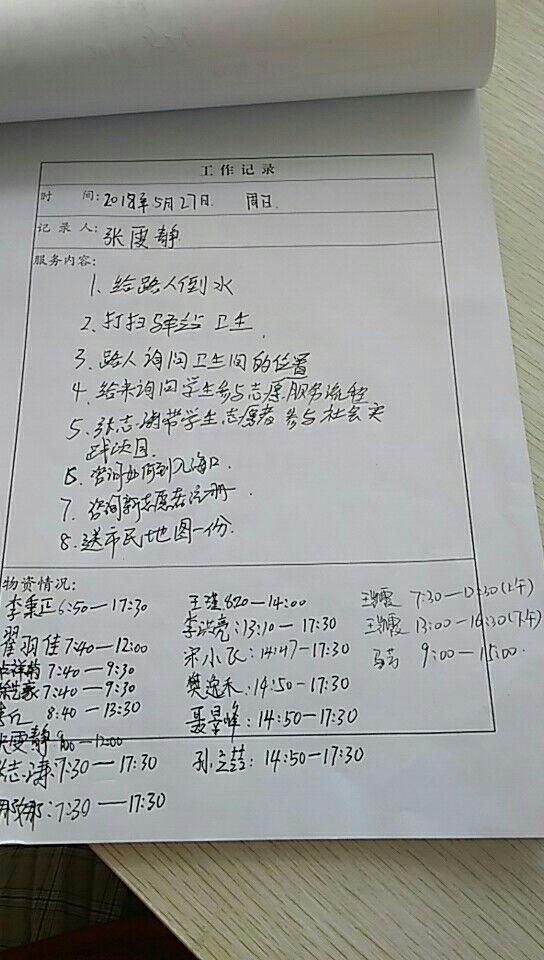 工作记录
时 间: 2018年5月27日. 周日.
记录人: 张雯静
服务内容:
1. 给路人倒水
2. 打扫驿站卫生.
3. 路人询问卫生间的位置
4. 给来询问学生参与志愿服务流程
5. 张志涛带学生志愿者参与社会实
践项目.
6. 咨询如何到入海口.
7. 咨询新志愿者注册
8. 送市民地图一份.
物资情况:
李秉正 6:50—17:30 王瑾 8:20—14:00 7:30—12:30(上午)
翟羽佳 7:40—12:00 李洪亮: 13:10—17:30 13:00—16:30(下午)
7:40—9:30 宋小飞: 14:47—17:30 9:00—15:00.
7:40—9:30 樊逸禾: 14:50—17:30
8:40—13:30 聂景峰: 14:50—17:30
张雯静 9:00—12:00
志涛: 7:30—17:30 孙立喆: 14:50—17:30
娜娜: 7:30—17:30